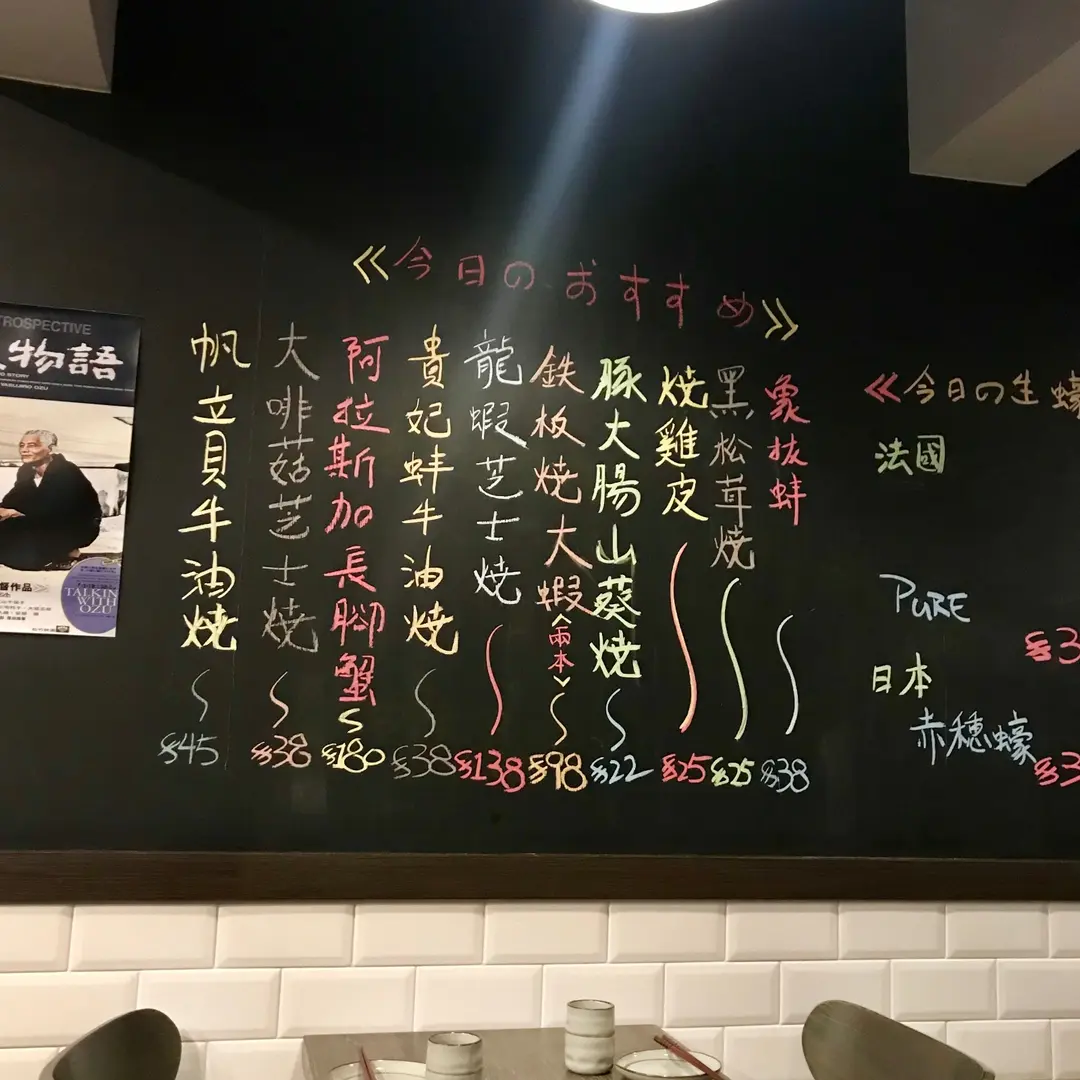 《今日のおすすめ》
象拔蚌 $38
黑松茸燒 $25
燒雞皮 $25
豚大腸山葵燒 $22
鉄板燒大蝦<兩本> $98
龍蝦芝士燒 $138
貴妃蚌牛油燒 $38
阿拉斯加長腳蟹 $180
大啡菇芝士燒 $38
帆立貝牛油燒 $45
《今日の生蠔
法國
PURE
$3
日本
赤穗蠔
$3
TROSPECTIVE
物語
STORY
YASUJIRO OZU
督作品
TALKIN
WITH
OZU